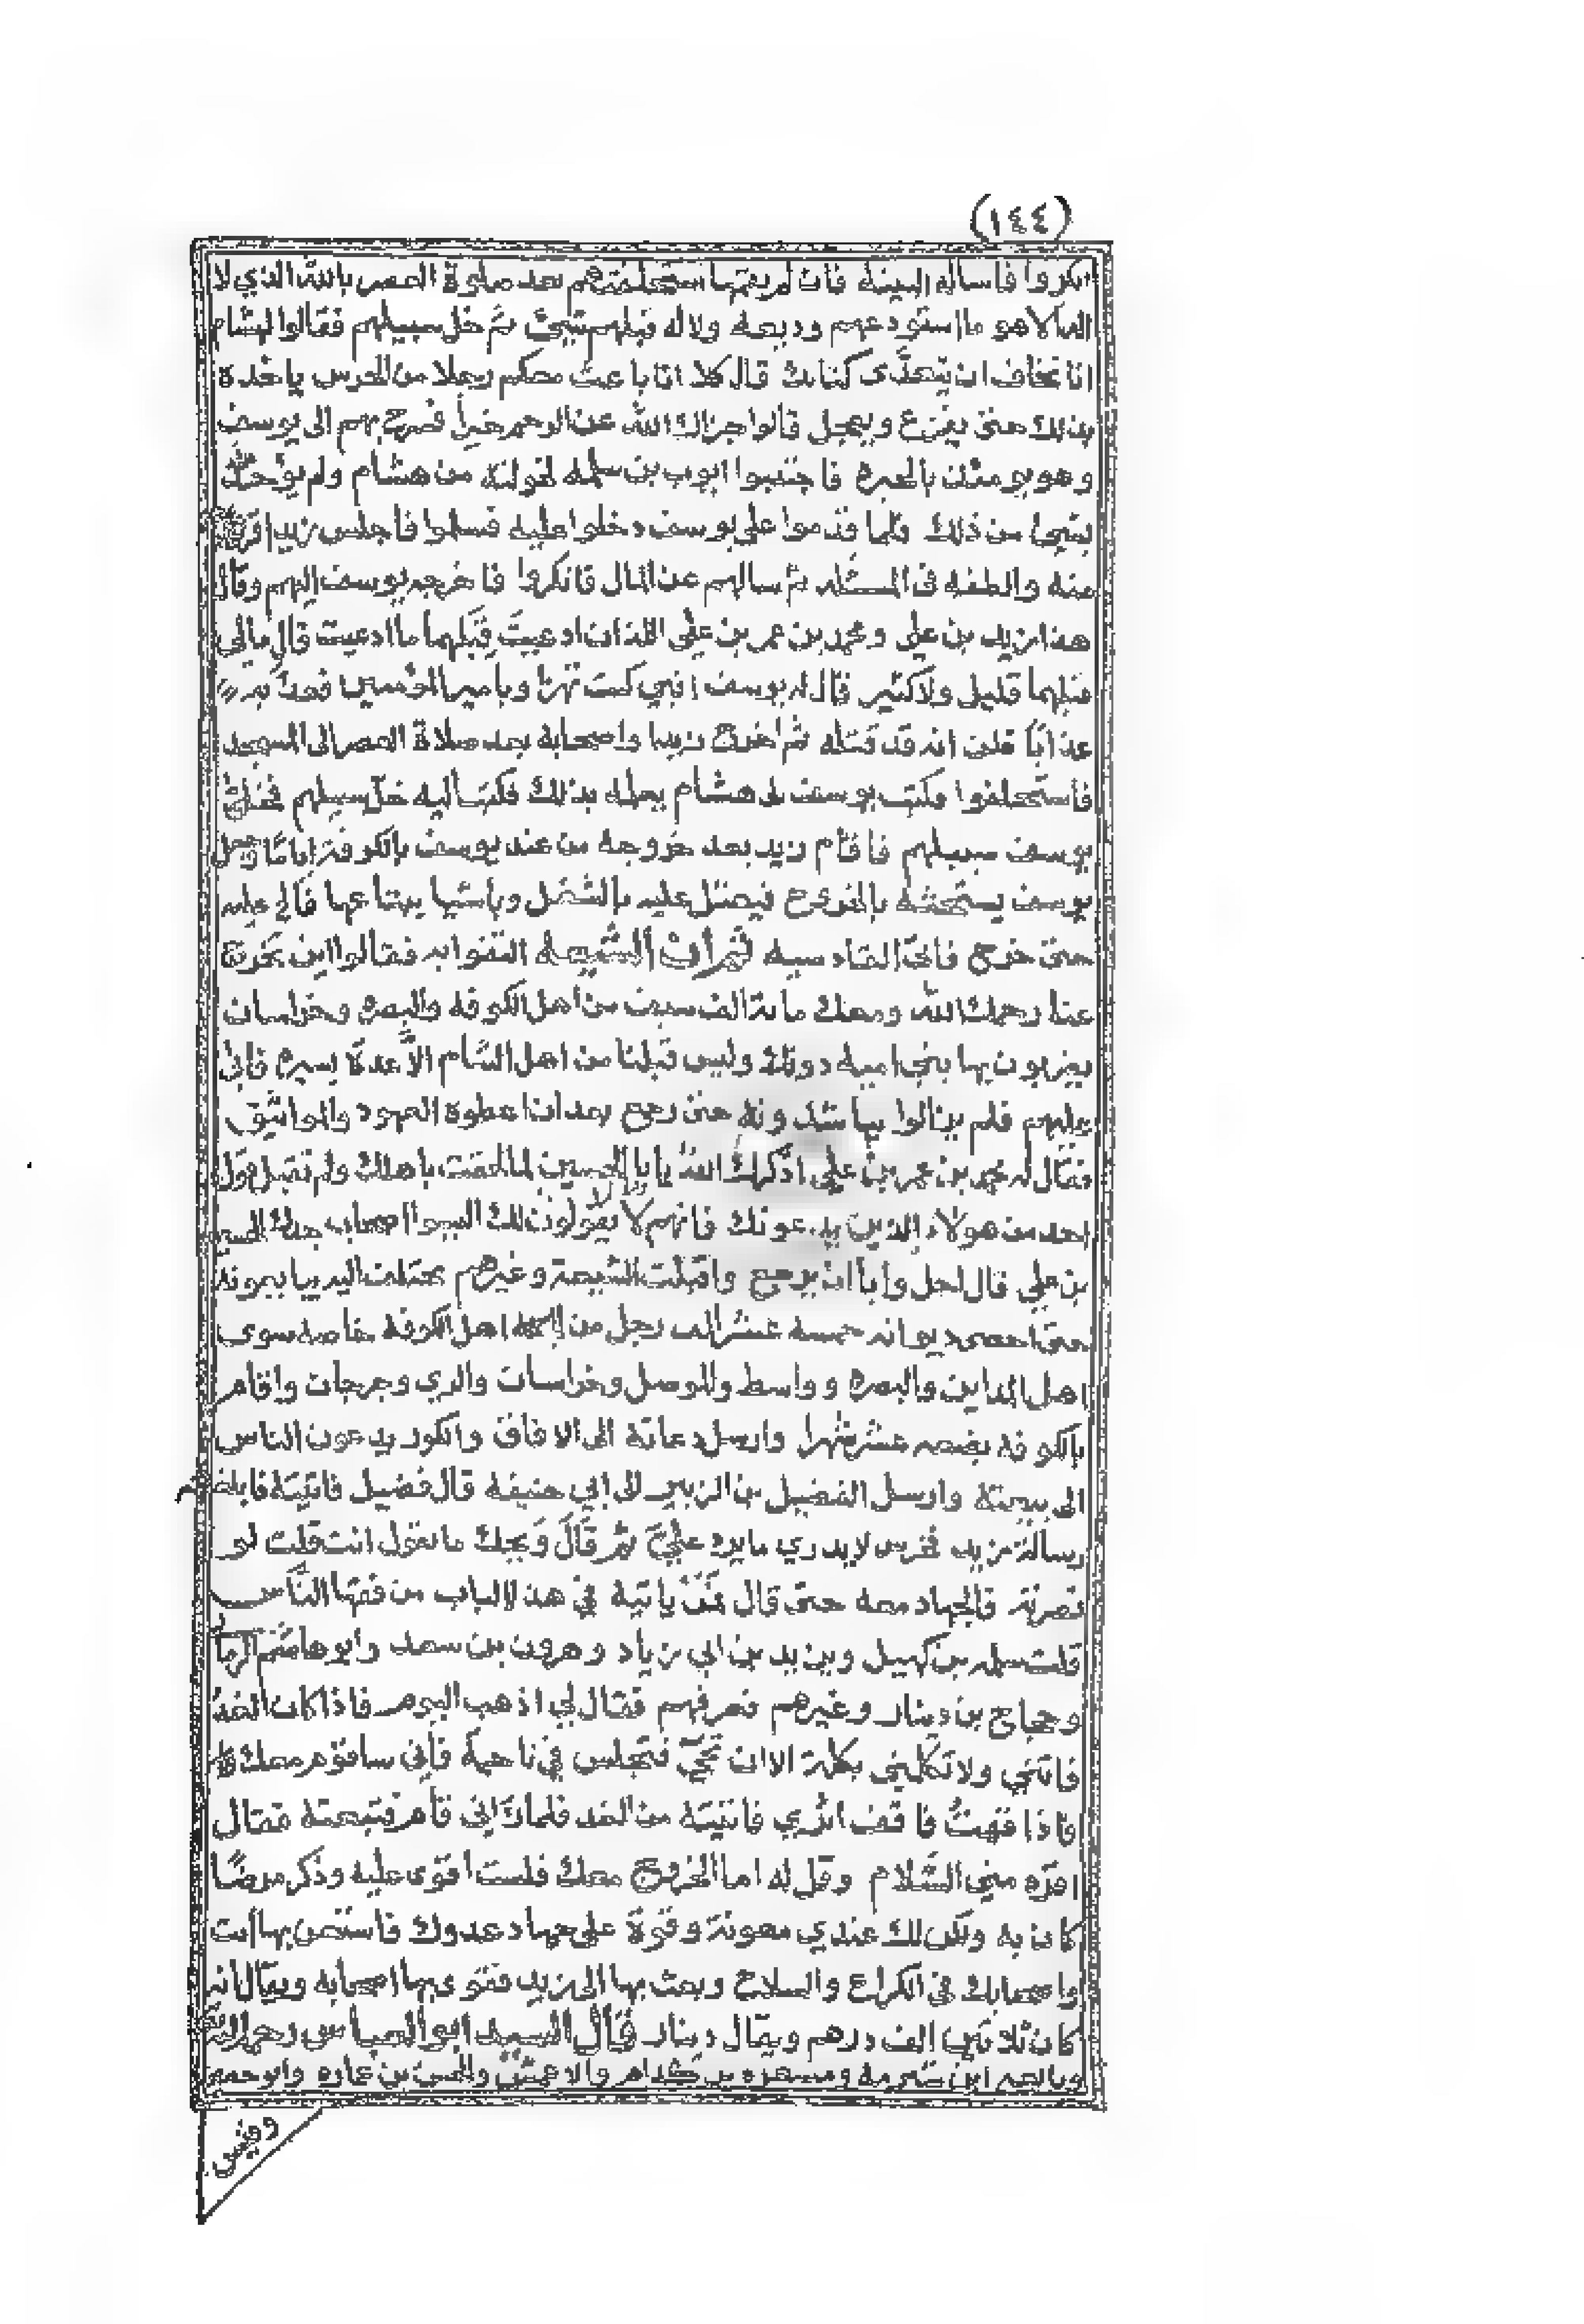 (١٤٤)
انكروا فاساله البينه فان لم يقيمها استحلفتهم بعد صلوة العصر بالله الذي لا
اله الا هو ما استودعهم وديعه ولا له قبلهم شيئ ثم خل سبيلهم فقالوا لهشام
انا نخاف ان يتعدى كتابك قال كلا انا باعث معكم رجلا من الحرس ياخذه
بذلك حتى يفرغ ويعجل قالوا جزاك الله عن الرحم خيراً فسرح بهم الى يوسف
وهو يومئذ بالحيره فاجتنبوا ايوب بن سلمه لخولته من هشام ولم يوخذ
بشيئ من ذلك فلما قدموا على يوسف دخلوا عليه فسلموا فاجلس زيدا
منه والطفه في المسئله ثم سالهم عن المال فانكروا فاخرجه يوسف اليهم وقال
هذا زيد بن علي ومحمد بن عمر بن علي الذان ادعيت قبلهما ما ادعيت قال مالي
قبلهما قليل ولا كثير قال له يوسف افبي كنت تهزا وبامير المؤمنين فعذبه
عذاباً ظن انه قد قتله ثم اخرج زيدا واصحابه بعد صلاة العصر الى المسجد
فاستحلفوا وكتب يوسف الى هشام يعلمه بذلك فكتب اليه خل سبيلهم فخلى
يوسف سبيلهم فاقام زيد بعد خروجه من عند يوسف بالكوفة اياما وجعل
يوسف يستحثه بالخروج فيعتل عليه بالشغل وباشيا يبتاعها فالح عليه
حتى خرج فاتى القادسيه ثم ان الشيعه التقوا به فقالوا اين تخرج
عنا رحمك الله ومعك مائة الف سيف من اهل الكوفه والبصره وخراسان
يضربون بها بني اميه دونك وليس قبلنا من اهل الشام الا عدة يسيره فابى
عليهم فلم يزالوا يناشدونه حتى رجع بعد ان اعطوه العهود والمواثيق
فقال له محمد بن عمر بن علي اذكرك الله يا ابا الحسين لما لحقت باهلك ولم تقبل قول
احد من هولاء الذين يدعونك فانهم لا يفون لك اليسوا اصحاب جدك الحسين
بن علي قال اجل وابا ان يرجع واقبلت الشيعة وغيرهم تختلف اليه يبايعونه
حتى احصى ديوانه خمسه عشر الف رجل من اهل الكوفة خاصه سوى
اهل المداين والبصره وواسط والموصل وخراسان والري وجرجان واقام
بالكوفه بضعه عشر شهرا وارسل دعاته الى الافاق والكور يدعون الناس
الى بيعته وارسل الفضيل بن الزبير الى ابي حنيفه قال فضيل فاتيته فابلغته
رسالة زيد فخرس لا يدري ما يرد علي ثم قال ويحك ما تقول انت قلت لو
نصرته فالجهاد معه حتى قال فمن ياتيه في هذا الباب من فقها الناس
قلت سلمه بن كهيل ويزيد بن ابي زياد وهرون بن سعد وابو هاشم الرماني
وحجاج بن دينار وغيرهم فعرفهم فقال لي اذهب اليوم فاذا كان الغد
فاتني ولا تكلمني بكلمة الا ان تجيّ فتجلس في ناحية فاني ساقوم معك
فاذا قمتُ فاقف اثري فاتيته من الغد فلما راني قام فتبعته فقال
اقره مني السَّلام وقل له اما الخروج معك فلست اقوى عليه وذكر مرضًا
كان به ولكن لك عندي معونة وقوة على جهاد عدوك فاستعن بها انت
واصحابك في الكراع والسلاح وبعث بها الى زيد فقوى بها اصحابه ويقال انه
كان ثلاثين الف درهم ويقال دينار قال السيد ابو العباس رحمه الله
وبايعه ابن شبرمة ومسعر بن كدام والاعمش والحسن بن عماره وابو حصين
وقيس